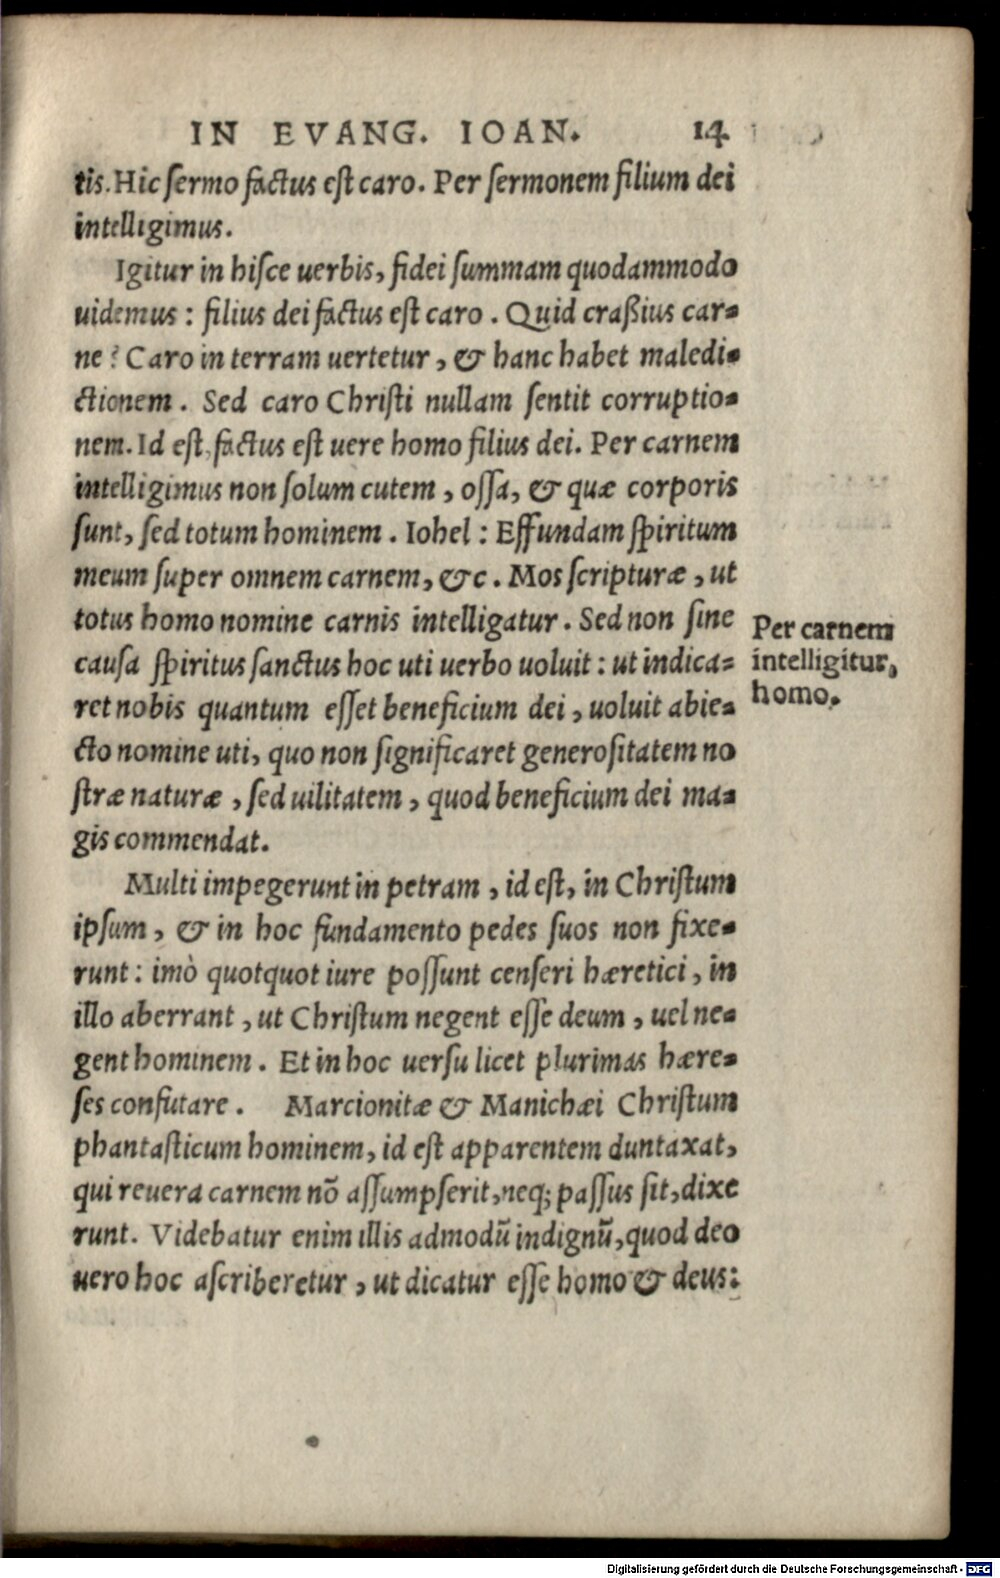 IN EVANG. IOAN. 14
tis. Hic ſermo factus eſt caro. Per ſermonem filium dei
intelligimus.
Igitur in hiſce uerbis, fidei ſummam quodammodo
uidemus: filius dei factus eſt caro. Quid craßius car⸗
ne? Caro in terram uertetur, & hanc habet maledi⸗
ctionem. Sed caro Chriſti nullam ſentit corruptio⸗
nem. Id eſt, factus eſt uere homo filius dei. Per carnem
intelligimus non ſolum cutem, oſſa, & quæ corporis
ſunt, ſed totum hominem. Iohel: Effundam ſpiritum
meum ſuper omnem carnem, &c. Mos ſcripturæ, ut
totus homo nomine carnis intelligatur. Sed non ſine
cauſa ſpiritus ſanctus hoc uti uerbo uoluit: ut indica⸗
ret nobis quantum eſſet beneficium dei, uoluit abie⸗
cto nomine uti, quo non ſignificaret generoſitatem no
ſtræ naturæ, ſed uilitatem, quod beneficium dei ma⸗
gis commendat.
Per carnem
intelligitur,
homo.
Multi impegerunt in petram, id eſt, in Chriſtum
ipſum, & in hoc fundamento pedes ſuos non fixe⸗
runt: imò quotquot iure poſſunt cenſeri hæretici, in
illo aberrant, ut Chriſtum negent eſſe deum, uel ne⸗
gent hominem. Et in hoc uerſu licet plurimas hære⸗
ſes confutare. Marcionitæ & Manichæi Chriſtum
phantaſticum hominem, id eſt apparentem duntaxat,
qui reuera carnem nō aſſumpſerit, neq; paſſus ſit, dixe
runt. Videbatur enim illis admodū indignū, quod deo
uero hoc aſcriberetur, ut dicatur eſſe homo & deus:
Digitalisierung gefördert durch die Deutsche Forschungsgemeinschaft - DFG